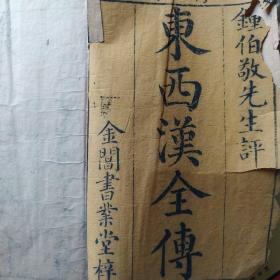 鍾伯敬先生評
東西漢全傳
金閶書業堂梓